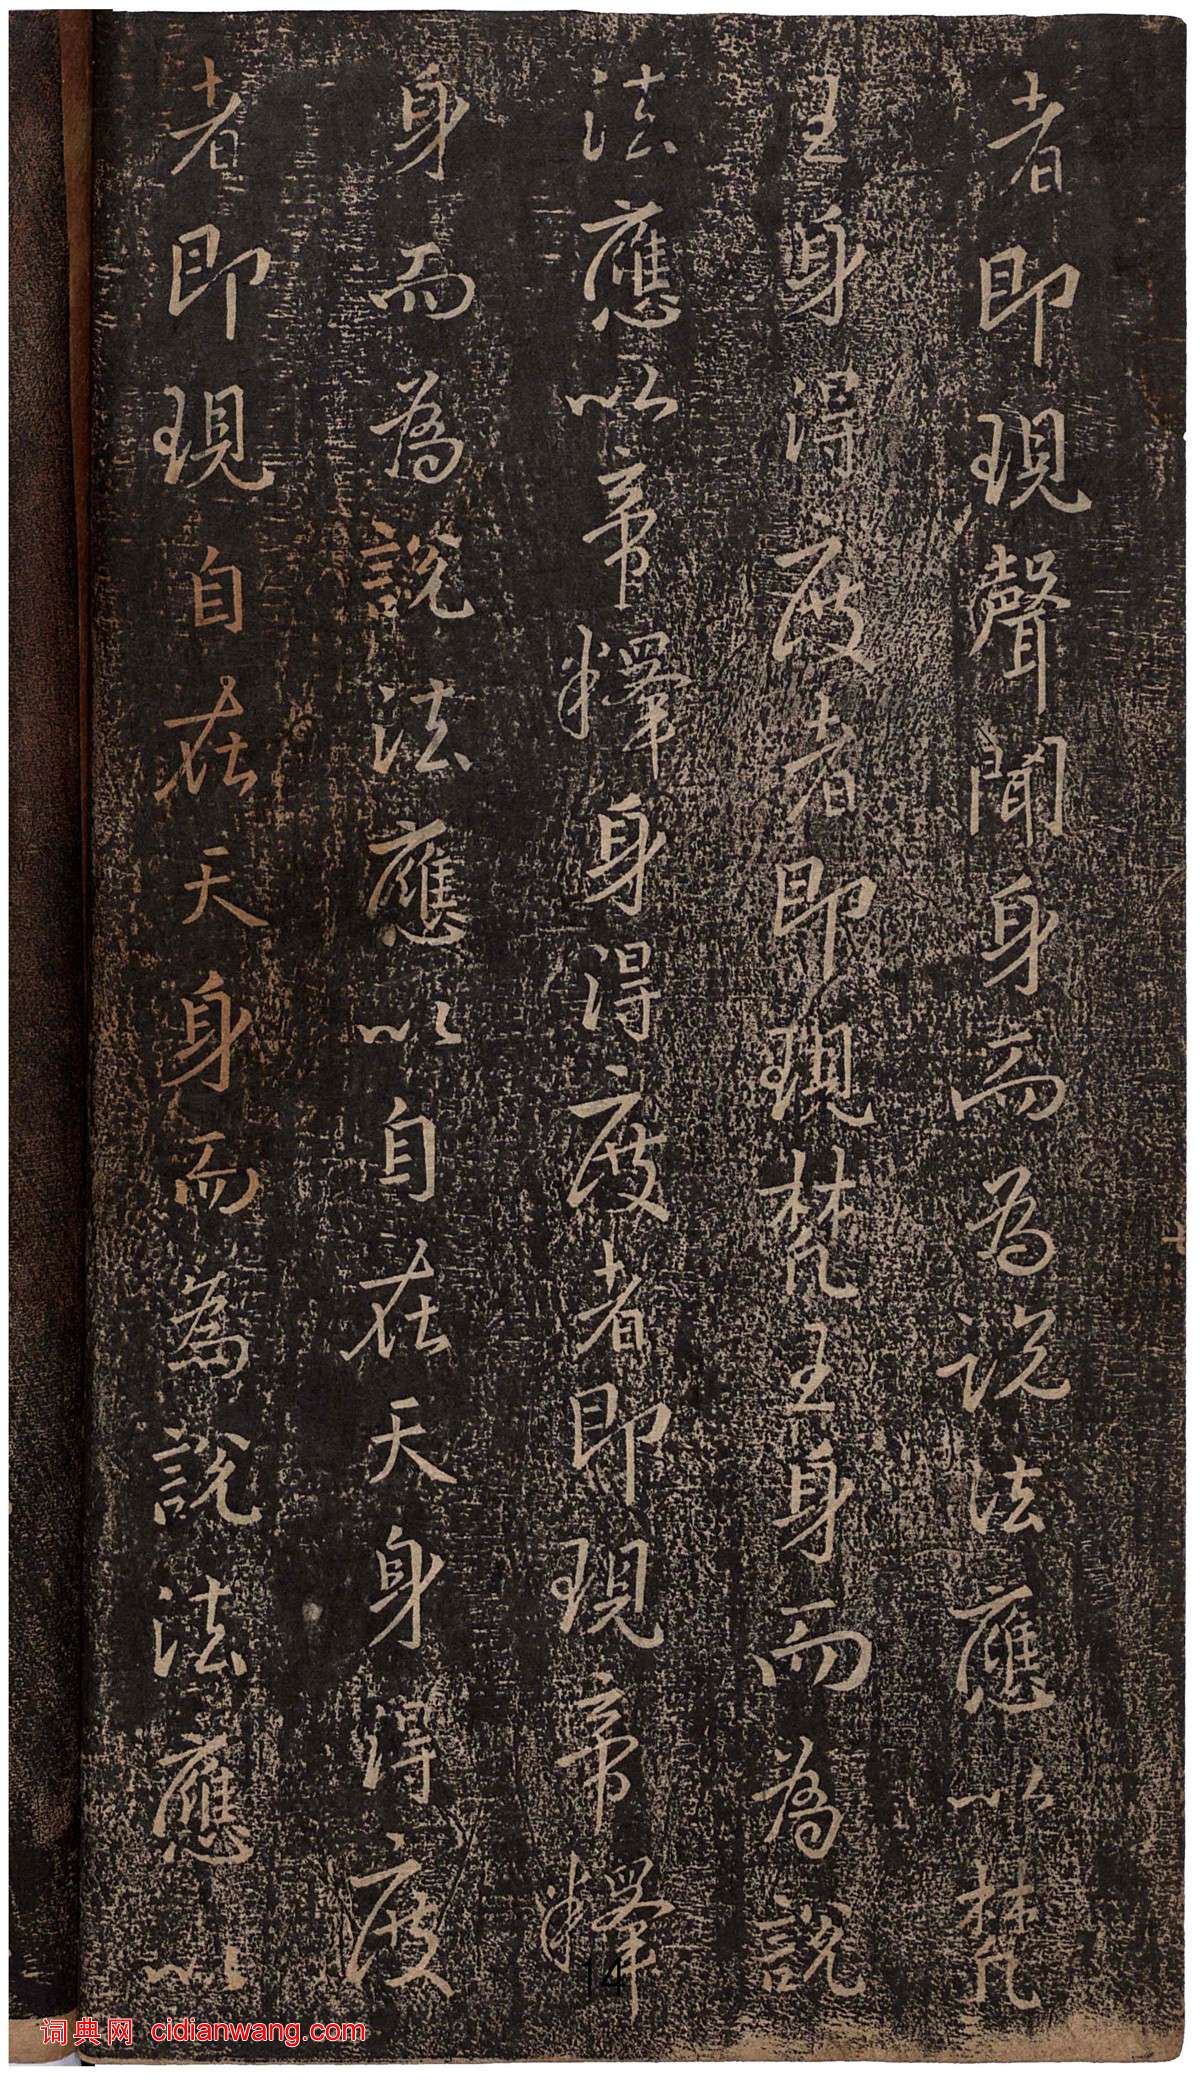 者即現聲聞身而為說法應以梵
王身得度者即現梵王身而為說
法應以帝釋身得度者即現帝釋
身而為說法應以自在天身得度
者即現自在天身而為說法應以
14
词典网 cidianwang.com